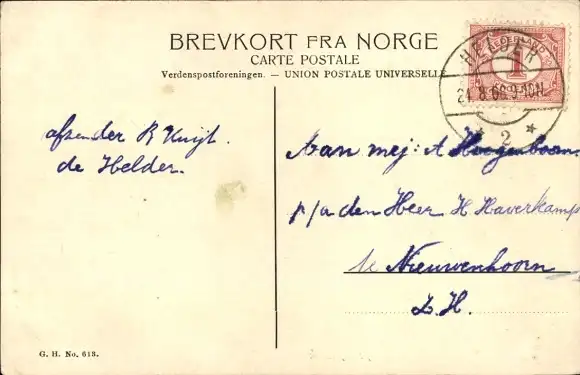 BREVKORT FRA NORGE
CARTE POSTALE
Verdenspostforeningen. — UNION POSTALE UNIVERSELLE
NEDERLAND
1
HELDER
9-10N
2
afzender R Kuijt.
de Helder.
Aan mej: A Hoogenboom
p/a den Heer H Haverkamp
te Nieuwenhoorn
Z. H.
G. H. No. 613.